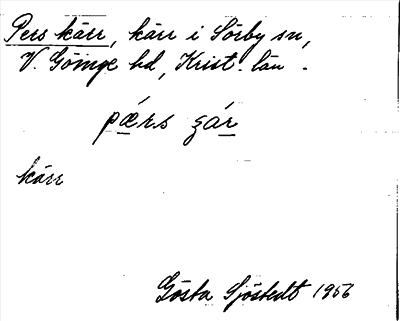 Pers kärr, kärr i Sörby sn,
V. Göinge hd, Krist. län.
pǽrs ʒár
kärr
Gösta Sjöstedt 1956